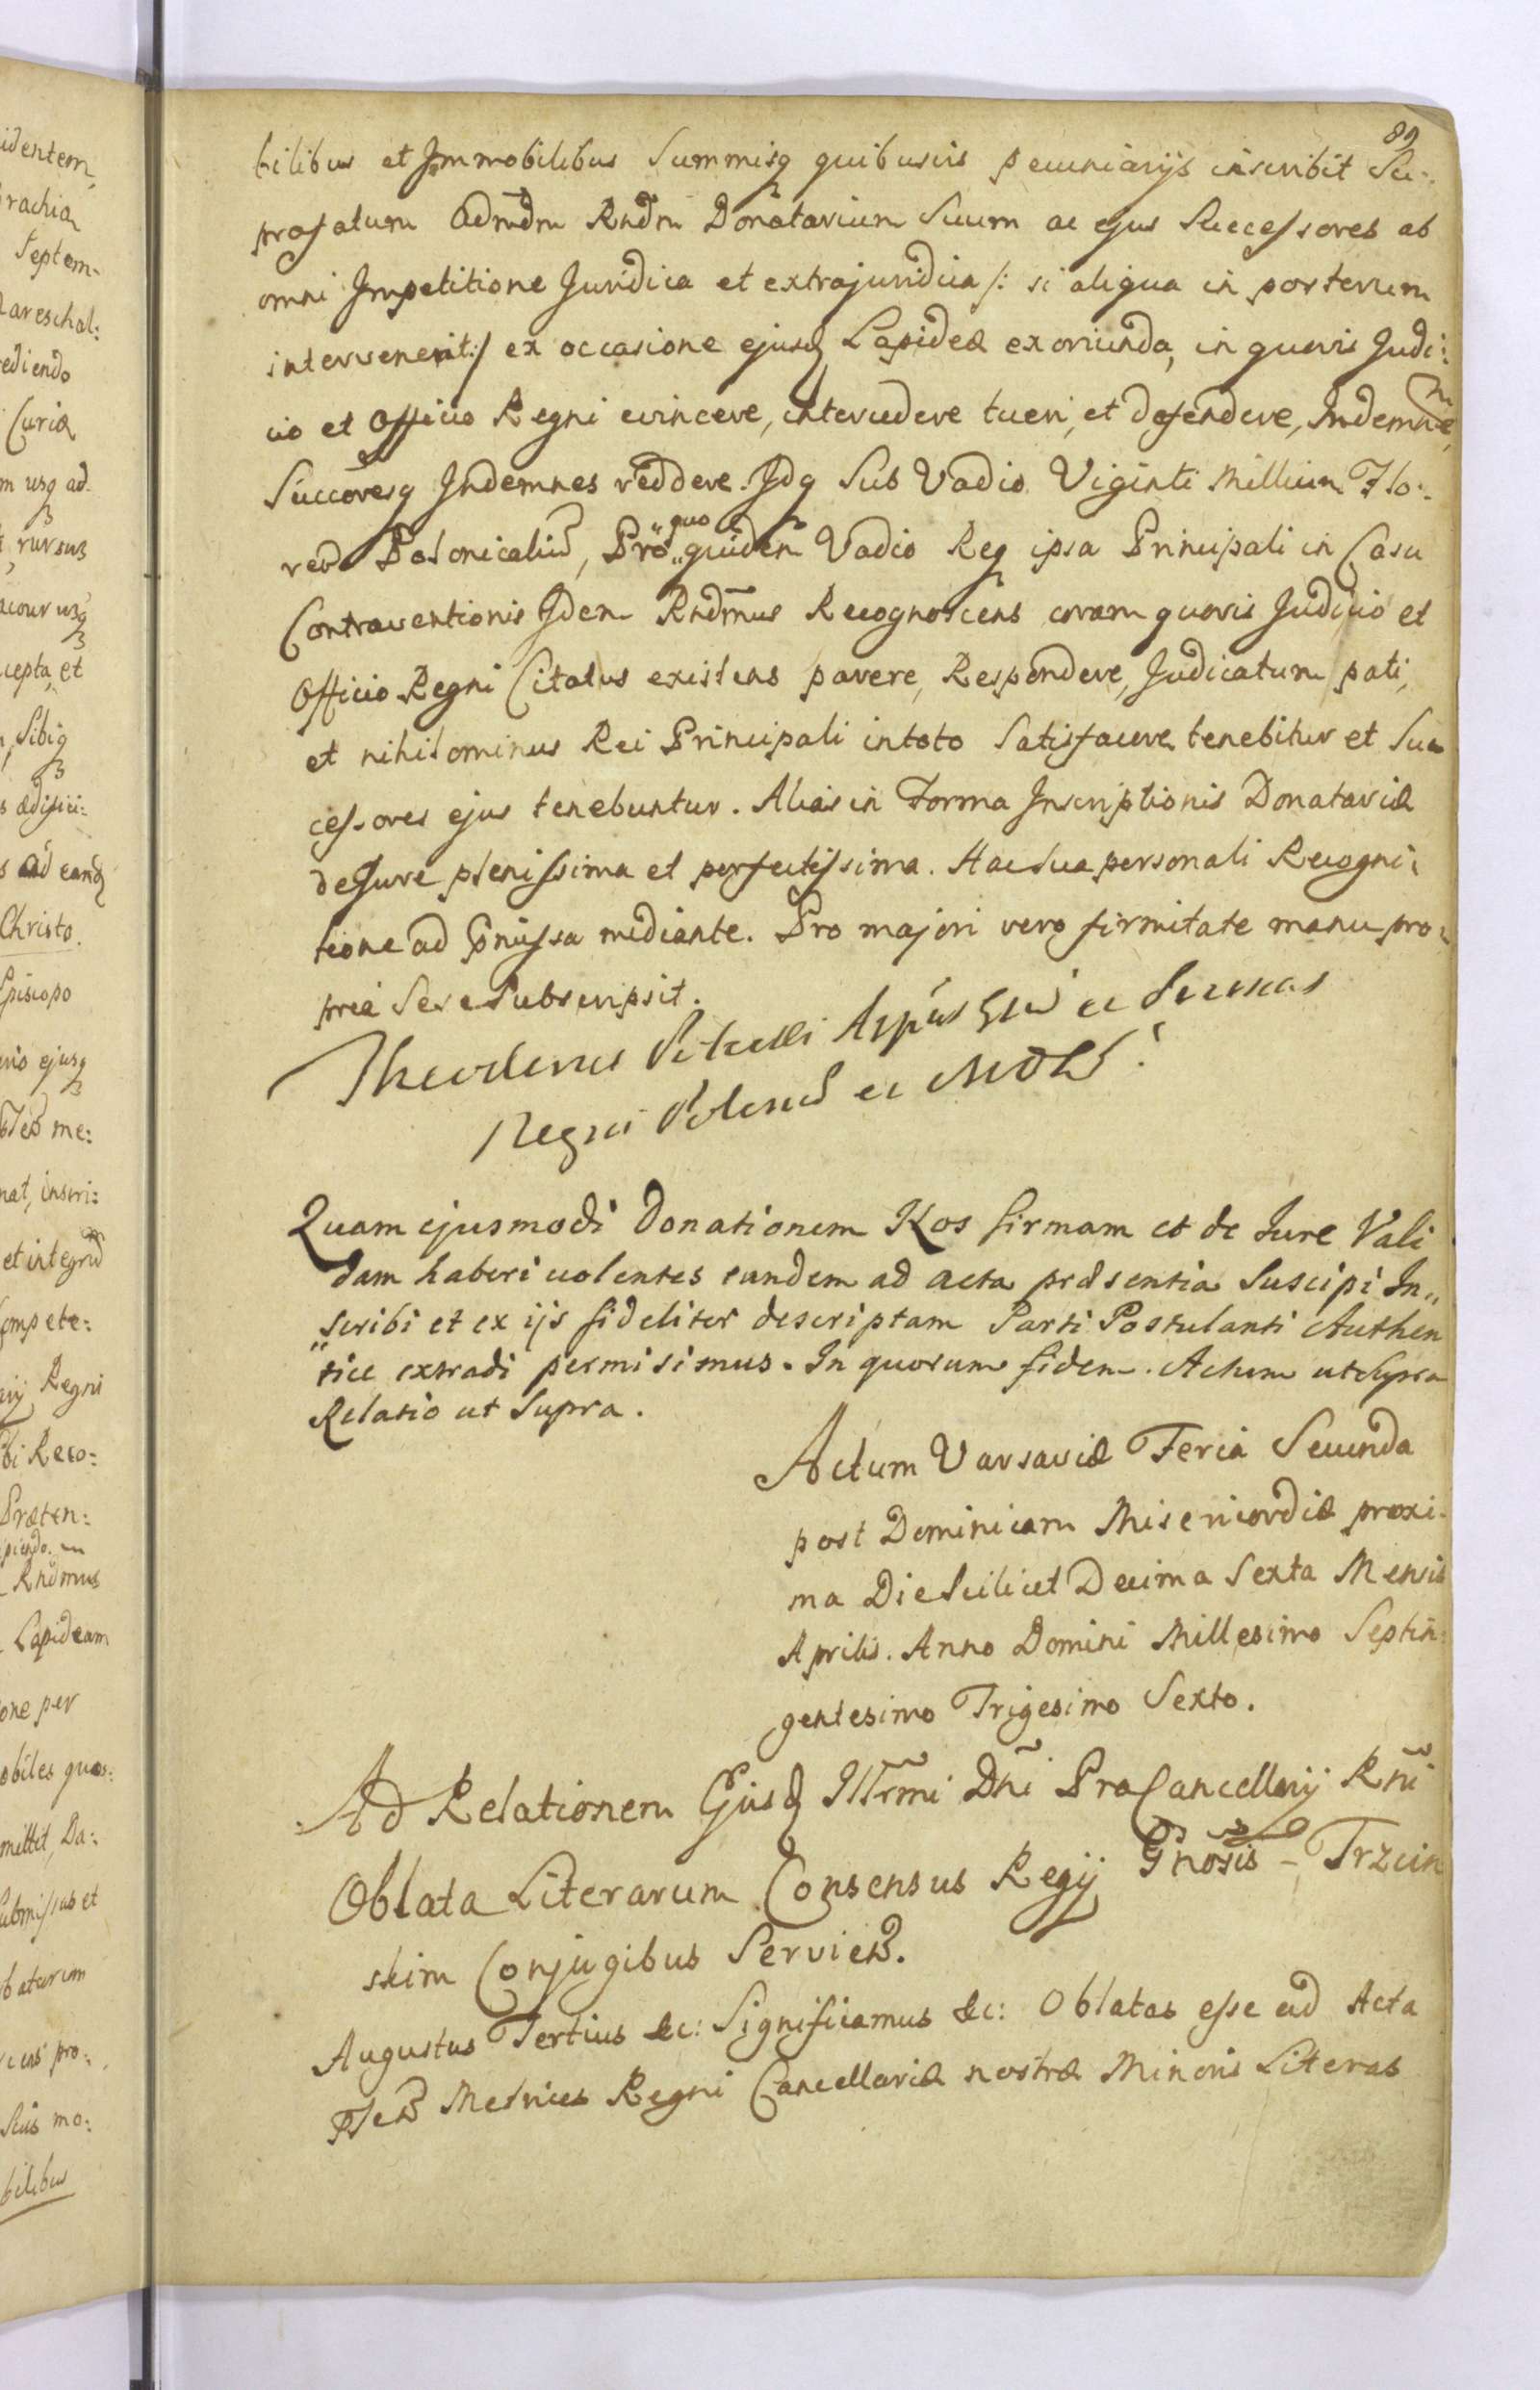 89
bilibus et Immobilibus Summisq quibusvis pecuniarijs inscribit Su-
prafatum Admdm Rndm Donatarium Suum ac ejus Successores ab
omni Impetitione Juridica et extrajuridica /: si aliqua in posterum
intervenerit :/ ex occasione ejusd Lapideæ exoriunda, in quovis Judi:
cio et Officio Regni evincere, intercedere tueri, et defendere, Indemne,
Succoresq Indemnes reddere. Idq Sub Vadio Viginti Millium Flo:
reo Polonicaliu, Pro quo quidem Vadio Req ipsa Principali in Casu
Contraventionis Idem Rndmus Recognoscens coram quovis Judicio et
Officio Regni Citatus existens parere, Respondere, Judicatum pati,
et nihilominus Rei Principali intoto Satisfacere tenebitur et Suc
cessores ejus tenebuntur. Alias in Forma Inscriptionis Donatariæ
deJure plenissima et perfectissima. Hac Sua personali Recogni:
tione ad pmissa mediante. Pro majori vero firmitate manu pro:
pria Sese Subscripsit.
Theodorus Potocki Arpus Gn ac Primas
Regni Polon ac MDL
Quam ejusmodi Donationem Nos firmam et de Jure Vali
dam haberi volentes eandem ad acta præsentia Suscipi In„
„scribi et ex ijs fideliter descriptam Parti Postulanti Authen
tice extradi permisimus. In quorum fidem. Actum ut Supra
Relatio ut Supra.
Actum Varsaviæ Feria Secunda
post Dominicam Misericordiæ proxi-
ma Die Scilicet Decima Sexta Mensis
Aprilis. Anno Domini Millesimo Septin:
gentesimo Trigesimo Sexto.
Ad Relationem Ejusd Illrmi Dni ProCancellarij Rni
Oblata Literarum Consensus Regij Gnosis - Trzcin
skim Conjugibus Servien.
Augustus Tertius &c: Significamus &c: Oblatas esse ad Acta
Metrices Regni Cancellariæ nostræ Minoris Literas